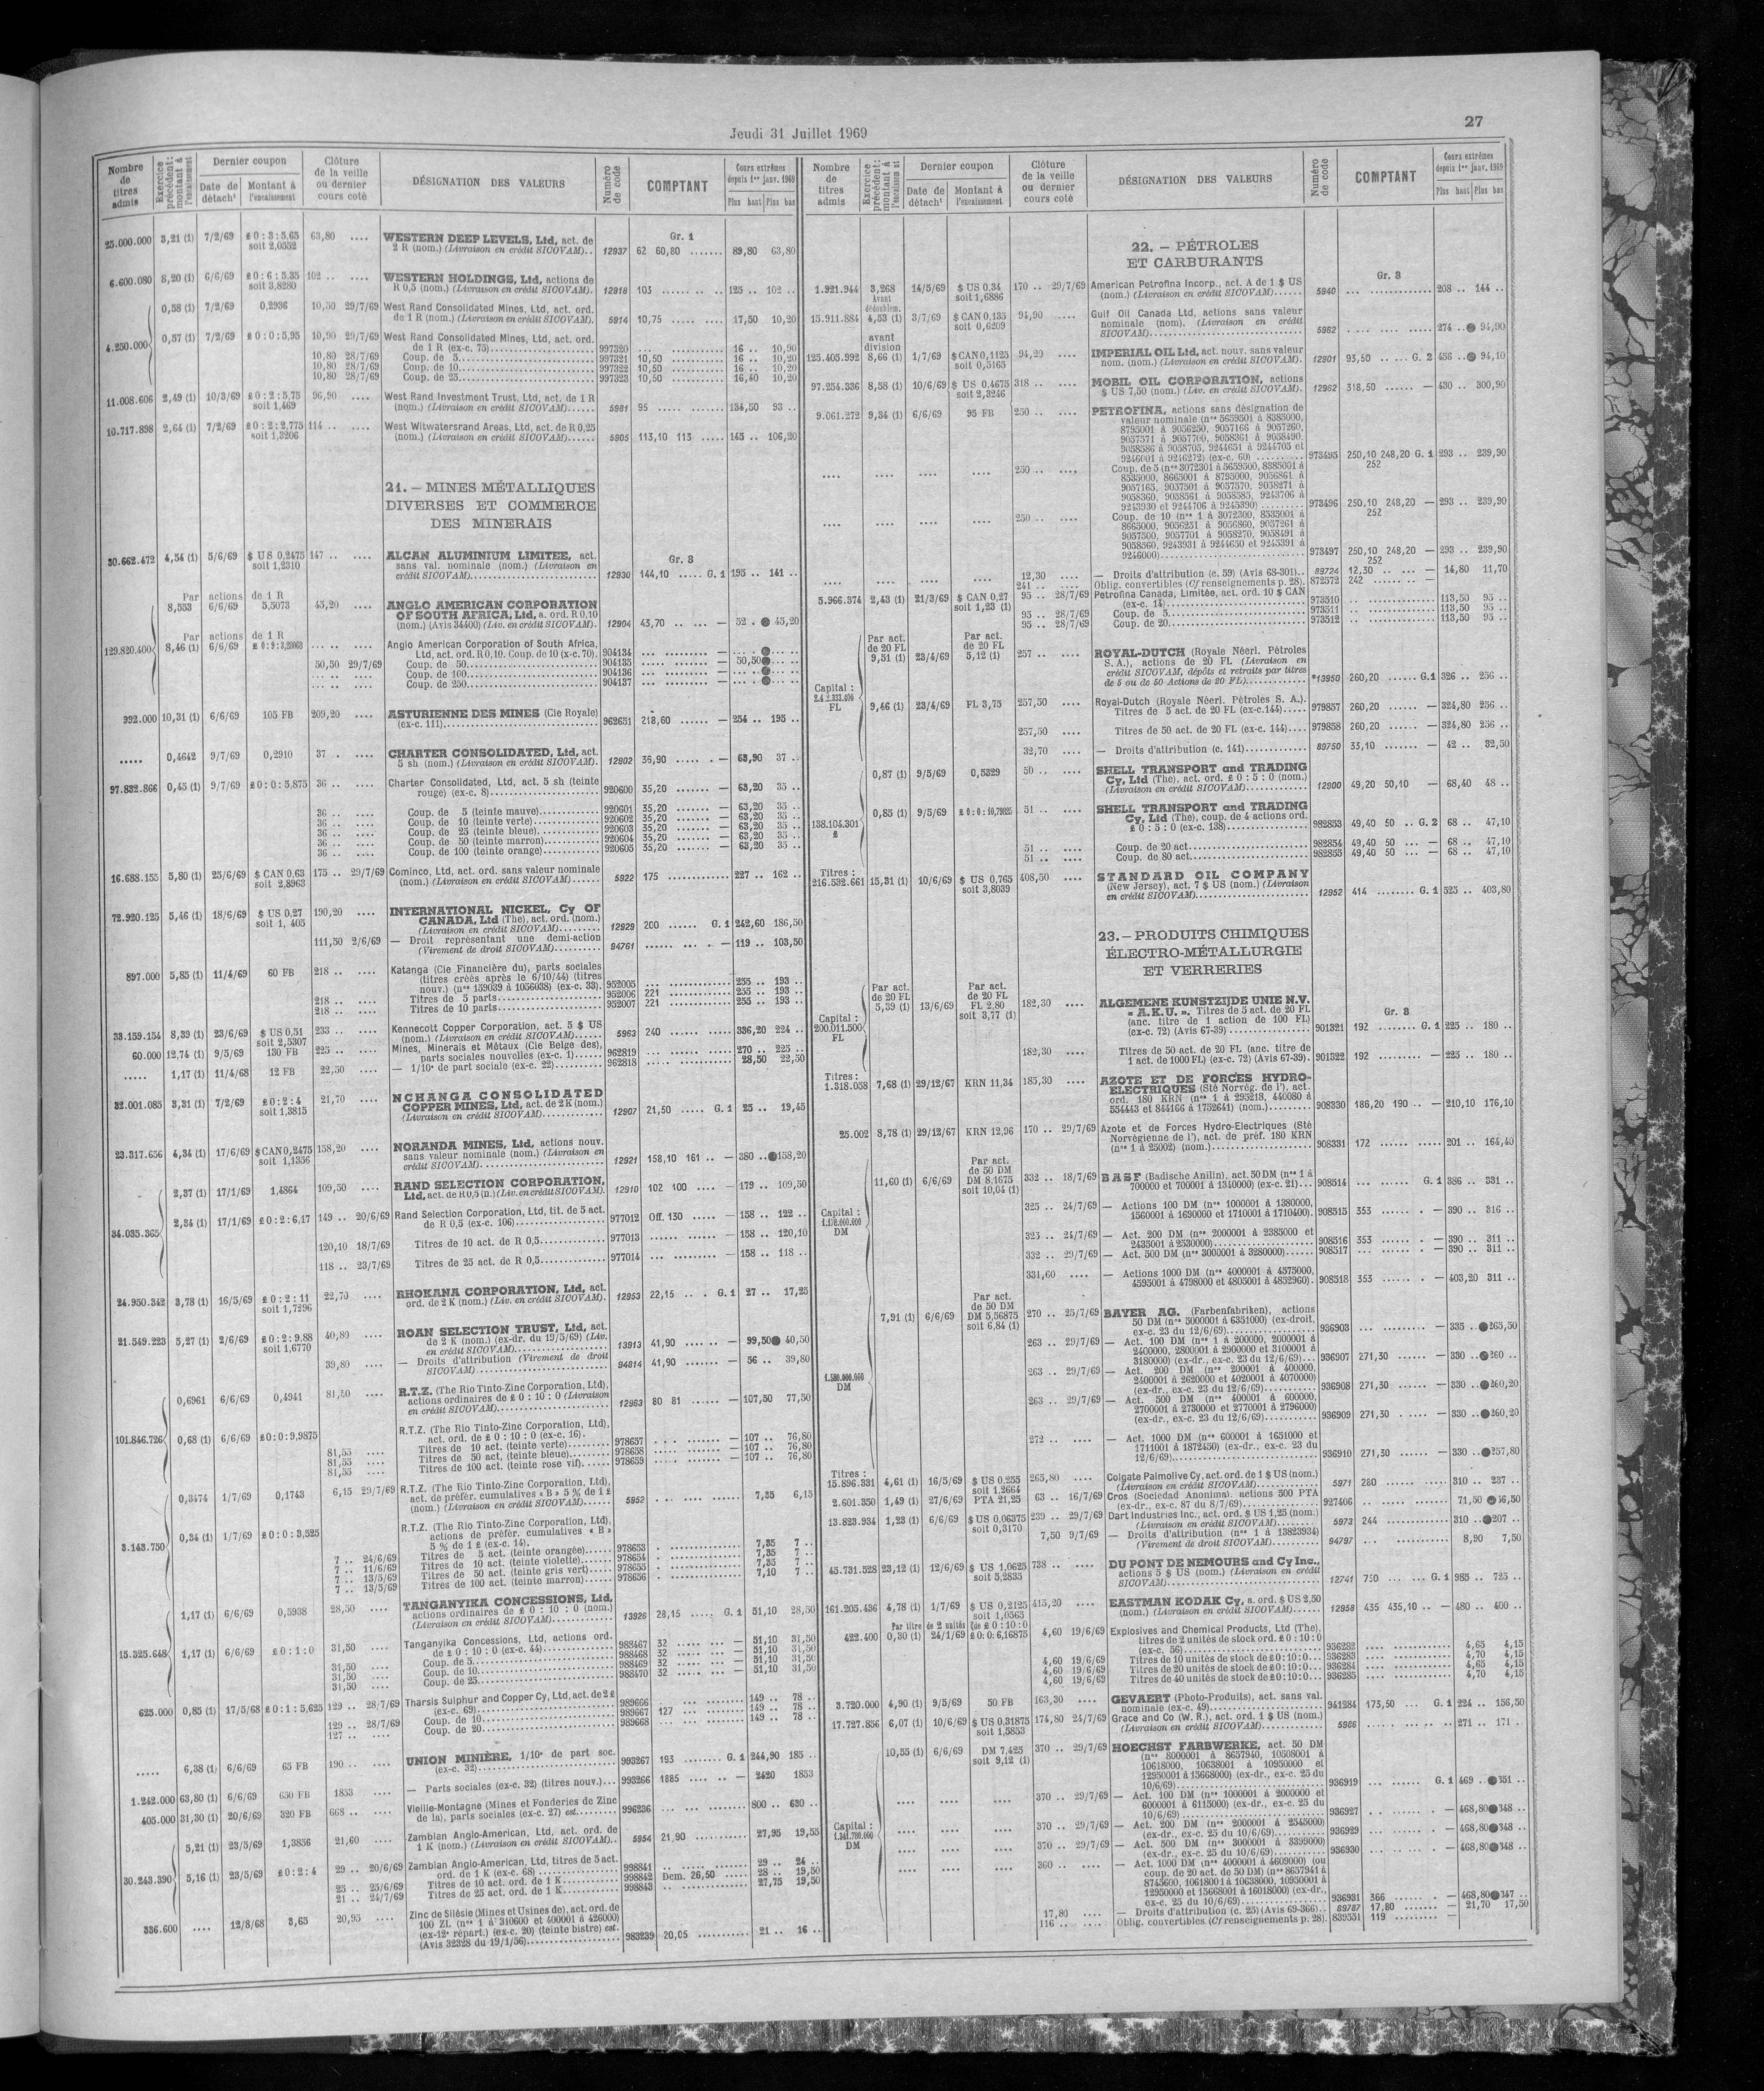 Jeudi 31 Juillet 1969
27
Nombre de titres admis
Exercice précédent : montant à l'encaissement
Dernier coupon
Date de détacht
Montant à l'encaissement
Clôture de la veille ou dernier cours coté
DÉSIGNATION DES VALEURS
Numéro de code
COMPTANT
Cours extrêmes depuis 1er janv. 1969
Plus haut
Plus bas
Gr. 1
25.000.000 3,21 (1) 7/2/69 £ 0 : 3 : 5,65 soit 2,0552 63,80 .... WESTERN DEEP LEVELS, Ltd, act. de
2 R (nom.) (Livraison en crédit SICOVAM).. 12937 62 60,80 ....... 89,80 63,80
6.600.080 8,20 (1) 6/6/69 £ 0 : 6 : 5,35 soit 3,8280 102 .. .... WESTERN HOLDINGS, Ltd, actions de
R 0,5 (nom.) (Livraison en crédit SICOVAM). 12918 103 ...... .. .. 125 .. 102 ..
0,58 (1) 7/2/69 0,2936 10,50 29/7/69 West Rand Consolidated Mines, Ltd, act. ord.
de 1 R (nom.) (Livraison en crédit SICOVAM). 5914 10,75 ..... .... 17,50 10,20
4.250.000 0,57 (1) 7/2/69 £ 0 : 0 : 5,95 10,90 29/7/69 West Rand Consolidated Mines, Ltd, act. ord.
de 1 R (ex-c. 75) 997320 ... ........... 16 .. 10,90
10,80 28/7/69 Coup. de 5 997321 10,50 ........... 16 .. 10,20
10,80 28/7/69 Coup. de 10 997322 10,50 ........... 16 .. 10,20
10,80 28/7/69 Coup. de 25 997323 10,50 ........... 16,40 10,20
11.008.606 2,49 (1) 10/3/69 £ 0 : 2 : 5,75 soit 1,469 96,90 .... West Rand Investment Trust, Ltd, act. de 1 R
(nom.) (Livraison en crédit SICOVAM)...... 5981 95 ..... ....... 134,50 93 ..
10.717.898 2,64 (1) 7/2/69 £ 0 : 2 : 2,775 soit 1,3206 114 .. .... West Witwatersrand Areas, Ltd, act. de R 0,25
(nom.) (Livraison en crédit SICOVAM)...... 5905 113,10 113 ..... 145 .. 106,20
21. — MINES MÉTALLIQUES
DIVERSES ET COMMERCE
DES MINERAIS
Gr. 3
30.662.472 4,54 (1) 5/6/69 $ US 0,2475 soit 1,2310 147 .. .... ALCAN ALUMINIUM LIMITEE, act.
sans val. nominale (nom.) (Livraison en
crédit SICOVAM) 12930 144,10 ..... G. 1 195 .. 141 ..
Par actions de 1 R
8,553 6/6/69 5,5073 45,20 .... ANGLO AMERICAN CORPORATION
OF SOUTH AFRICA, Ltd, a. ord. R 0,10
(nom.) (Avis 34400) (Liv. en crédit SICOVAM). 12904 43,70 .. ... — 52 . ● 45,20
Par actions de 1 R
129.820.400 8,46 (1) 6/6/69 £ 0 : 9 : 3,20063 ... .. .... Anglo American Corporation of South Africa,
Ltd, act. ord. R 0,10. Coup. de 10 (x-c. 70). 904134 ... ......... — ... . ●
50,50 29/7/69 Coup. de 50 904135 ..... ....... — 50,50 ●
Coup. de 100 904136
Coup. de 250 904137
992.000 10,31 (1) 6/6/69 105 FB 209,20 .... ASTURIENNE DES MINES (Cie Royale)
(ex-c. 111) 962651 218,60 ...... — 254 .. 195 ..
..... 0,4642 9/7/69 0,2910 37 . .... CHARTER CONSOLIDATED, Ltd, act.
5 sh (nom.) (Livraison en crédit SICOVAM). 12902 36,90 ..... . — 63,90 37 ..
97.832.866 0,45 (1) 9/7/69 £ 0 : 0 : 5,875 36 .. .... Charter Consolidated, Ltd, act. 5 sh (teinte
rouge) (ex-c. 8) 920600 35,20 ....... — 63,20 35 ..
36 .. .... Coup. de 5 (teinte mauve) 920601 35,20 ....... — 63,20 35 ..
36 .. .... Coup. de 10 (teinte verte) 920602 35,20 ....... — 63,20 35 ..
36 .. .... Coup. de 25 (teinte bleue) 920603 35,20 ....... — 63,20 35 ..
36 .. .... Coup. de 50 (teinte marron) 920604 35,20 ....... — 63,20 35 ..
36 .. .... Coup. de 100 (teinte orange) 920605 35,20 ....... — 63,20 35 ..
16.688.155 5,80 (1) 25/6/69 $ CAN 0,63 soit 2,8963 175 .. 29/7/69 Cominco, Ltd, act. ord. sans valeur nominale
(nom.) (Livraison en crédit SICOVAM)...... 5922 175 ............ 227 .. 162 ..
72.920.125 5,46 (1) 18/6/69 $ US 0,27 soit 1, 405 190,20 .... INTERNATIONAL NICKEL, Cy OF
CANADA, Ltd (The), act. ord. (nom.)
(Livraison en crédit SICOVAM) 12929 200 ...... G. 1 242,60 186,50
111,50 2/6/69 — Droit représentant une demi-action
(Virement de droit SICOVAM) 94761 ...... ... . — 119 .. 103,50
897.000 5,85 (1) 11/4/69 60 FB 218 .. .... Katanga (Cie Financière du), parts sociales
(titres créés après le 6/10/44) (titres
nouv.) (nos 159039 à 1056038) (ex-c. 33). 952005 ... ............ 255 .. 193 ..
218 .. .... Titres de 5 parts 952006 221 ............ 255 .. 193 ..
218 .. .... Titres de 10 parts 952007 221 ............ 255 .. 193 ..
33.159.154 8,39 (1) 23/6/69 $ US 0,51 soit 2,5307 233 .. .... Kennecott Copper Corporation, act. 5 $ US
(nom.) (Livraison en crédit SICOVAM)...... 5963 240 ............ 336,20 224 ..
60.000 12,74 (1) 9/5/69 130 FB 225 .. .... Mines, Minerais et Métaux (Cie Belge des),
parts sociales nouvelles (ex-c. 1)...... 962819 ... ............ 270 .. 225 ..
..... 1,17 (1) 11/4/68 12 FB 22,50 .... — 1/10e de part sociale (ex-c. 22) 962818 ............... 28,50 22,50
32.001.085 3,31 (1) 7/2/69 £ 0 : 2 : 4 soit 1,3815 21,70 .... NCHANGA CONSOLIDATED
COPPER MINES, Ltd, act. de 2 K (nom.)
(Livraison en crédit SICOVAM) 12907 21,50 ..... G. 1 25 .. 19,45
23.317.656 4,34 (1) 17/6/69 $ CAN 0,2475 soit 1,1356 158,20 .... NORANDA MINES, Ltd, actions nouv.
sans valeur nominale (nom.) (Livraison en
crédit SICOVAM) 12921 158,10 161 .. — 380 .. ● 158,20
2,37 (1) 17/1/69 1,4864 109,50 .... RAND SELECTION CORPORATION,
Ltd, act. de R 0,5 (n.) (Liv. en crédit SICOVAM). 12910 102 100 .... — 179 .. 109,50
34.035.365 2,34 (1) 17/1/69 £ 0 : 2 : 6,17 149 .. 20/6/69 Rand Selection Corporation, Ltd, tit. de 5 act.
de R 0,5 (ex-c. 106) 977012 Off. 130 ..... — 158 .. 122 ..
120,10 18/7/69 Titres de 10 act. de R 0,5 977013 ...... ...... — 158 .. 120,10
118 .. 23/7/69 Titres de 25 act. de R 0,5 977014 ... ......... — 158 .. 118 ..
24.950.342 3,78 (1) 16/5/69 £ 0 : 2 : 11 soit 1,7296 22,70 .... RHOKANA CORPORATION, Ltd, act.
ord. de 2 K (nom.) (Liv. en crédit SICOVAM). 12953 22,15 .. . G. 1 27 .. 17,25
21.549.223 5,27 (1) 2/6/69 £ 0 : 2 : 9.88 soit 1,6770 40,80 .... ROAN SELECTION TRUST, Ltd, act.
de 2 K (nom.) (ex-dr. du 19/5/69) (Liv.
en crédit SICOVAM) 13913 41,90 .... .. — 99,50 ● 40,50
39,80 .... — Droits d'attribution (Virement de droit
SICOVAM) 94814 41,90 ...... — 56 .. 39,80
0,6961 6/6/69 0,4941 81,50 .... R.T.Z. (The Rio Tinto-Zinc Corporation, Ltd),
actions ordinaires de £ 0 : 10 : 0 (Livraison
en crédit SICOVAM) 12963 80 81 ...... — 107,50 77,50
101.846.726 0,68 (1) 6/6/69 £ 0 : 0 : 9,9875 R.T.Z. (The Rio Tinto-Zinc Corporation, Ltd),
act. ord. de £ 0 : 10 : 0 (ex-c. 16).
81,55 .... Titres de 10 act. (teinte verte) 978657 ... . ...... — 107 .. 76,80
81,55 .... Titres de 50 act. (teinte bleue) 978658 ..... ...... — 107 .. 76,80
81,55 .... Titres de 100 act. (teinte rose vif) 978659 ..... ...... — 107 .. 76,80
0,3474 1/7/69 0,1743 6,15 29/7/69 R.T.Z. (The Rio Tinto-Zinc Corporation, Ltd),
act. de préfér. cumulatives « B » 5 % de 1 £
(nom.) (Livraison en crédit SICOVAM)...... 5952 .. ... .... ..... 7,35 6,15
3.143.750 0,34 (1) 1/7/69 £ 0 : 0 : 3,525 R.T.Z. (The Rio Tinto-Zinc Corporation, Ltd),
actions de préfér. cumulatives « B »
5 % de 1 £ (ex-c. 14).
7 .. 24/6/69 Titres de 5 act. (teinte orangée) 978653 7,35 7 ..
7 .. 11/6/69 Titres de 10 act. (teinte violette) 978654 7,35 7 ..
7 .. 13/5/69 Titres de 50 act. (teinte gris vert) 978655 7,35 7 ..
7 .. 13/5/69 Titres de 100 act. (teinte marron) 978656 7,10 7 ..
1,17 (1) 6/6/69 0,5938 28,50 .... TANGANYIKA CONCESSIONS, Ltd,
actions ordinaires de £ 0 : 10 : 0 (nom.)
(Livraison en crédit SICOVAM) 13926 28,15 ..... G. 1 51,10 28,50
15.325.648 1,17 (1) 6/6/69 £ 0 : 1 : 0 31,50 .... Tanganyika Concessions, Ltd, actions ord.
de £ 0 : 10 : 0 (ex-c. 44) 988467 32 ..... ... — 51,10 31,50
31,50 .... Coup. de 5 988468 32 ..... ... — 51,10 31,50
31,50 .... Coup. de 10 988469 32 ..... ... — 51,10 31,50
31,50 .... Coup. de 25 988470 32 ..... ... — 51,10 31,50
625.000 0,85 (1) 17/5/68 £ 0 : 1 : 5,625 129 .. 28/7/69 Tharsis Sulphur and Copper Cy, Ltd, act. de 2 £
(ex-c. 69) 989666 ... ... ......... 149 .. 78 ..
129 .. 28/7/69 Coup. de 10 989667 127 ... ......... 149 .. 78 ..
127 .. .... Coup. de 20 989668 ... ... ......... 149 .. 78 ..
..... 6,38 (1) 6/6/69 65 FB 190 .. .... UNION MINIÈRE, 1/10e de part soc.
(ex-c. 32) 993267 193 ........ G. 1 244,90 185 ..
1.242.000 63,80 (1) 6/6/69 650 FB 1853 .... — Parts sociales (ex-c. 32) (titres nouv.)... 993266 1885 ..... .. — 2420 1853
405.000 31,30 (1) 20/6/69 320 FB 668 .. .... Vieille-Montagne (Mines et Fonderies de Zinc
de la), parts sociales (ex-c. 27) est. 996236 ... ... ......... 800 .. 630 ..
5,21 (1) 23/5/69 1,3856 21,60 .... Zambian Anglo-American, Ltd, act. ord. de
1 K (nom.) (Livraison en crédit SICOVAM).. 5954 21,90 ........... 27,95 19,55
30.243.390 5,16 (1) 23/5/69 £ 0 : 2 : 4 29 .. 20/6/69 Zambian Anglo-American, Ltd, titres de 5 act.
ord. de 1 K (ex-c. 68) 998841 .. ...... ....... 29 .. 24 ..
25 .. 25/6/69 Titres de 10 act. ord. de 1 K 998842 Dem. 26,50 ..... 28 .. 19,50
21 .. 24/7/69 Titres de 25 act. ord. de 1 K 998843 .. ............ 27,75 19,50
336.600 .... 12/8/68 3,65 20,95 .... Zinc de Silésie (Mines et Usines de), act. ord. de
100 Zl. (nos 1 à 310600 et 400001 à 426000)
(ex-12e répart.) (ex-c. 20) (teinte bistre) est.
(Avis 32328 du 19/1/56) 983239 20,05 ........... 21 .. 16 ..
Nombre de titres admis
Exercice précédent : montant à l'encaissem nt
Dernier coupon
Date de détacht
Montant à l'encaissement
Clôture de la veille ou dernier cours coté
DÉSIGNATION DES VALEURS
Numéro de code
COMPTANT
Cours extrêmes depuis 1er janv. 1969
Plus haut
Plus bas
22. — PÉTROLES
ET CARBURANTS
Gr. 3
1.921.944 3,268 14/5/69 $ US 0,34 soit 1,6886 170 .. 29/7/69 American Petrofina Incorp., act. A de 1 $ US
(nom.) (Livraison en crédit SICOVAM)...... 5940 ... ............. 208 .. 144 ..
Avant dédoublem.
15.911.884 4,53 (1) 3/7/69 $ CAN 0,135 soit 0,6209 94,90 .... Gulf Oil Canada Ltd, actions sans valeur
nominale (nom). (Livraison en crédit
SICOVAM) 5962 ..... .... ..... 274 .. ● 94,90
avant division
125.405.992 8,66 (1) 1/7/69 $ CAN 0,1125 soit 0,5165 94,20 .... IMPERIAL OIL Ltd, act. nouv. sans valeur
nom. (nom.) (Livraison en crédit SICOVAM). 12901 93,50 .. ... G. 2 456 .. ● 94,10
97.254.336 8,58 (1) 10/6/69 $ US 0,4675 soit 2,3246 318 .. .... MOBIL OIL CORPORATION, actions
$ US 7,50 (nom.) (Liv. en crédit SICOVAM). 12962 318,50 ...... — 430 .. 300,90
9.061.272 9,34 (1) 6/6/69 95 FB 250 .. .... PETROFINA, actions sans désignation de
valeur nominale (nos 5659501 à 8385000,
8795001 à 9056250, 9057166 à 9057260,
9057571 à 9057700, 9058361 à 9058490,
9058586 à 9058705, 9244651 à 9244705 et
9246001 à 9246272) (ex-c. 60) 973495 250,10 248,20 G. 1 293 .. 239,90
252
.... .... .... .... 250 .. .... Coup. de 5 (nos 3072301 à 5659500, 8385001 à
8535000, 8665001 à 8795000, 9056861 à
9057165, 9057501 à 9057570, 9058271 à
9058360, 9058561 à 9058585, 9243706 à
9243930 et 9244706 à 9245390) 973496 250,10 248,20 — 293 .. 239,90
252
.... .... .... .... 250 .. .... Coup. de 10 (nos 1 à 3072300, 8535001 à
8665000, 9056251 à 9056860, 9057261 à
9057500, 9057701 à 9058270, 9058491 à
9058560, 9243931 à 9244650 et 9245391 à
9246000) 973497 250,10 248,20 — 293 .. 239,90
252
.... .... .... .... 12,30 .... — Droits d'attribution (c. 59) (Avis 68-301).. 89724 12,30 .. ... — 14,80 11,70
241 .. .... Oblig. convertibles (Cf renseignements p. 28). 872572 242 ...... .. —
5.966.374 2,43 (1) 21/3/69 $ CAN 0,27 soit 1,23 (1) 95 .. 28/7/69 Petrofina Canada, Limitée, act. ord. 10 $ CAN
(ex-c. 14) 973510 .. ............. 113,50 95 ..
95 .. 28/7/69 Coup. de 5 973511 .. ............. 113,50 95 ..
95 .. 28/7/69 Coup. de 20 973512 .. ............. 113,50 95 ..
Capital : 2.4 . .333.400 FL
Par act. de 20 FL 9,51 (1) 23/4/69 Par act. de 20 FL 5,12 (1) 257 .. .... ROYAL-DUTCH (Royale Néerl. Pétroles
S. A.), actions de 20 FL (Livraison en
crédit SICOVAM, dépôts et retraits par titres
de 5 ou de 50 Actions de 20 FL) *13950 260,20 ...... G. 1 326 .. 256 ..
9,46 (1) 23/4/69 FL 3,75 257,50 .... Royal-Dutch (Royale Néerl. Pétroles S. A.).
Titres de 5 act. de 20 FL (ex-c. 144)..... 979857 260,20 ...... — 324,80 256 ..
257,50 .... Titres de 50 act. de 20 FL (ex-c. 144).... 979858 260,20 ...... — 324,80 256 ..
32,70 .... — Droits d'attribution (c. 141) 89750 33,10 ....... — 42 .. 32,50
138.104.301 £
0,87 (1) 9/5/69 0,5329 50 .. .... SHELL TRANSPORT and TRADING
Cy, Ltd (The), act. ord. £ 0 : 5 : 0 (nom.)
(Livraison en crédit SICOVAM) 12900 49,20 50,10 — 68,40 48 ..
0,85 (1) 9/5/69 £ 0 : 0 : 10,79825 51 .. .... SHELL TRANSPORT and TRADING
Cy, Ltd (The), coup. de 4 actions ord.
£ 0 : 5 : 0 (ex-c. 138) 982853 49,40 50 .. G. 2 68 .. 47,10
51 .. .... Coup. de 20 act. 982854 49,40 50 ... — 68 .. 47,10
51 .. .... Coup. de 80 act. 982855 49,40 50 ... — 68 .. 47,10
Titres : 216.532.661 15,31 (1) 10/6/69 $ US 0,765 soit 3,8039 408,50 .... STANDARD OIL COMPANY
(New Jersey), act. 7 $ US (nom.) (Livraison
en crédit SICOVAM) 12952 414 ........ G. 1 525 .. 403,80
23. — PRODUITS CHIMIQUES
ÉLECTRO-MÉTALLURGIE
ET VERRERIES
Gr. 3
Capital : 200.011.500 FL
Par act. de 20 FL 5,39 (1) 13/6/69 Par act. de 20 FL FL 2,80 soit 3,77 (1) 182,30 .... ALGEMENE KUNSTZIJDE UNIE N.V.
« A.K.U. ». Titres de 5 act. de 20 FL
(anc. titre de 1 action de 100 FL)
(ex-c. 72) (Avis 67-39) 901321 192 ........ G. 1 225 .. 180 ..
182,30 .... Titres de 50 act. de 20 FL (anc. titre de
1 act. de 1000 FL) (ex-c. 72) (Avis 67-39). 901322 192 ......... — 225 .. 180 ..
Titres : 1.318.058 7,68 (1) 29/12/67 KRN 11,34 185,30 .... AZOTE ET DE FORCES HYDRO-
ELECTRIQUES (Sté Norvég. de l'), act.
ord. 180 KRN (nos 1 à 295218, 440080 à
554443 et 844166 à 1752641) (nom.) 908330 186,20 190 .. — 210,10 176,10
25.002 8,78 (1) 29/12/67 KRN 12,96 170 .. 29/7/69 Azote et de Forces Hydro-Electriques (Sté
Norvégienne de l'), act. de préf. 180 KRN
(nos 1 à 25002) (nom.) 908331 172 ...... ..... 201 .. 164,40
Capital : 1.178.000.000 DM
11,60 (1) 6/6/69 Par act. de 50 DM DM 8.1675 soit 10,04 (1) 332 .. 18/7/69 BASF (Badische Anilin), act. 50 DM (nos 1 à
700000 et 700001 à 1340000) (ex-c. 21)... 908514 ... ...... G. 1 386 .. 331 ..
325 .. 24/7/69 — Actions 100 DM (nos 1000001 à 1380000,
1560001 à 1690000 et 1710001 à 1710400). 908515 353 ...... . — 390 .. 316 ..
325 .. 24/7/69 — Act. 200 DM (nos 2000001 à 2385000 et
2435001 à 2530000) 908516 353 ...... . — 390 .. 311 ..
332 .. 29/7/69 — Act. 500 DM (nos 3000001 à 3280000)...... 908517 ... ...... . — 390 .. 311 ..
331,60 .... — Actions 1000 DM (nos 4000001 à 4575000,
4595001 à 4798000 et 4803001 à 4852960). 908518 353 ...... . — 403,20 311 ..
1.580.000.000 DM
7,91 (1) 6/6/69 Par act. de 50 DM DM 5,56875 soit 6,84 (1) 270 .. 25/7/69 BAYER AG. (Farbenfabriken), actions
50 DM (nos 5000001 à 6351000) (ex-droit,
ex-c. 23 du 12/6/69) 936903 ... ......... — 335 .. ● 265,50
263 .. 29/7/69 — Act. 100 DM (nos 1 à 200000, 2000001 à
2400000, 2800001 à 2900000 et 3100001 à
3180000) (ex-dr., ex-c. 23 du 12/6/69)... 936907 271,30 ...... — 330 .. ● 260 ..
263 .. 29/7/69 — Act. 200 DM (nos 200001 à 400000,
2400001 à 2620000 et 4020001 à 4070000)
(ex-dr., ex-c. 23 du 12/6/69) 936908 271,30 ...... — 330 .. ● 260,20
263 .. 29/7/69 — Act. 500 DM (nos 400001 à 600000,
2700001 à 2730000 et 2770001 à 2796000)
(ex-dr., ex-c. 23 du 12/6/69) 936909 271,30 . .... — 330 .. ● 260,20
272 .. .... — Act. 1000 DM (nos 600001 à 1651000 et
1711001 à 1872450) (ex-dr., ex-c. 23 du
12/6/69) 936910 271,30 ...... — 330 .. ● 257,80
Titres : 15.896.331 4,61 (1) 16/5/69 $ US 0,255 soit 1,2664 265,80 .... Colgate Palmolive Cy, act. ord. de 1 $ US (nom.)
(Livraison en crédit SICOVAM) 5971 280 ...... ..... 310 .. 237 ..
2.601.350 1,49 (1) 27/6/69 PTA 21,25 63 .. 16/7/69 Cros (Sociedad Anonima), actions 500 PTA
(ex-dr., ex-c. 87 du 8/7/69) 927406 .. ...... ...... 71,50 ● 56,50
13.823.934 1,23 (1) 6/6/69 $ US 0,06375 soit 0,3170 239 .. 29/7/69 Dart Industries Inc., act. ord. $ US 1,25 (nom.)
(Livraison en crédit SICOVAM) 5973 244 ............ 310 .. ● 207 ..
7,50 9/7/69 — Droits d'attribution (nos 1 à 13823934)
(Virement de droit SICOVAM) 94797 ... ............ 8,90 7,50
45.731.528 23,12 (1) 12/6/69 $ US 1,0625 soit 5,2835 738 .. ..... DU PONT DE NEMOURS and Cy Inc.,
actions 5 $ US (nom.) (Livraison en crédit
SICOVAM) 12741 750 ... ... G. 1 985 .. 725 ..
161.205.436 4,78 (1) 1/7/69 $ US 0,2125 soit 1,0565 415,20 .... EASTMAN KODAK Cy, a. ord. $ US 2,50
(nom.) (Livraison en crédit SICOVAM)...... 12958 435 435,10 .. — 480 .. 400 ..
Par titre de 2 unités (de £ 0 : 10 : 0
422.400 0,30 (1) 24/1/69 £ 0 : 0 : 6,16875 4,60 19/6/69 Explosives and Chemical Products, Ltd (The),
titres de 2 unités de stock ord. £ 0 : 10 : 0
(ex-c. 56) 936282 .... ............ 4,65 4,15
4,60 19/6/69 Titres de 10 unités de stock de £ 0 : 10 : 0... 936283 .... ............ 4,70 4,15
4,60 19/6/69 Titres de 20 unités de stock de £ 0 : 10 : 0... 936284 .... ............ 4,65 4,15
4,60 19/6/69 Titres de 40 unités de stock de £ 0 : 10 : 0... 936285 .... ............ 4,70 4,15
3.720.000 4,90 (1) 9/5/69 50 FB 163,30 .... GEVAERT (Photo-Produits), act. sans val.
nominale (ex-c. 49) 941284 173,50 ... G. 1 224 .. 156,50
17.727.856 6,07 (1) 10/6/69 $ US 0,31875 soit 1,5853 174,80 24/7/69 Grace and Co (W. R.), act. ord. 1 $ US (nom.)
(Livraison en crédit SICOVAM) 5986 ...... ... .. .. 271 .. 171 .
Capital : 1.341.780.000 DM
10,55 (1) 6/6/69 DM 7,425 soit 9,12 (1) 370 .. 29/7/69 HOECHST FARBWERKE, act. 50 DM
(nos 8000001 à 8657940, 10508001 à
10618000, 10638001 à 10950000 et
12950001 à 15668000) (ex-dr., ex-c. 25 du
10/6/69) 936919 ... ...... G. 1 469 .. ● 351 ..
.... .... .... 370 .. 29/7/69 — Act. 100 DM (nos 1000001 à 2000000 et
6000001 à 6115000) (ex-dr., ex-c. 25 du
10/6/69) 936927 .. . ...... . — 468,80 ● 348 ..
.... .... .... 370 .. 29/7/69 — Act. 200 DM (nos 2000001 à 2545000)
(ex-dr., ex-c. 25 du 10/6/69) 936929 ... ...... . — 468,80 ● 348 ..
.... .... .... 370 .. 29/7/69 — Act. 500 DM (nos 3000001 à 3399000)
(ex-dr., ex-c. 25 du 10/6/69) 936930 ... ...... . — 468,80 ● 348 ..
.... .... .... 360 .. .... — Act. 1000 DM (nos 4000001 à 4609000) (ou
coup. de 20 act. de 50 DM) (nos 8657941 à
8745600, 10618001 à 10638000, 10950001 à
12950000 et 15668001 à 16018000) (ex-dr.,
ex-c. 25 du 10/6/69) 936931 366 ...... . — 468,80 ● 347 ..
17,80 .... — Droits d'attribution (c. 25) (Avis 69-366).. 89787 17,80 ....... — 21,70 17,50
116 .. .... Oblig. convertibles (Cf renseignements p. 28). 839551 119 ......... —